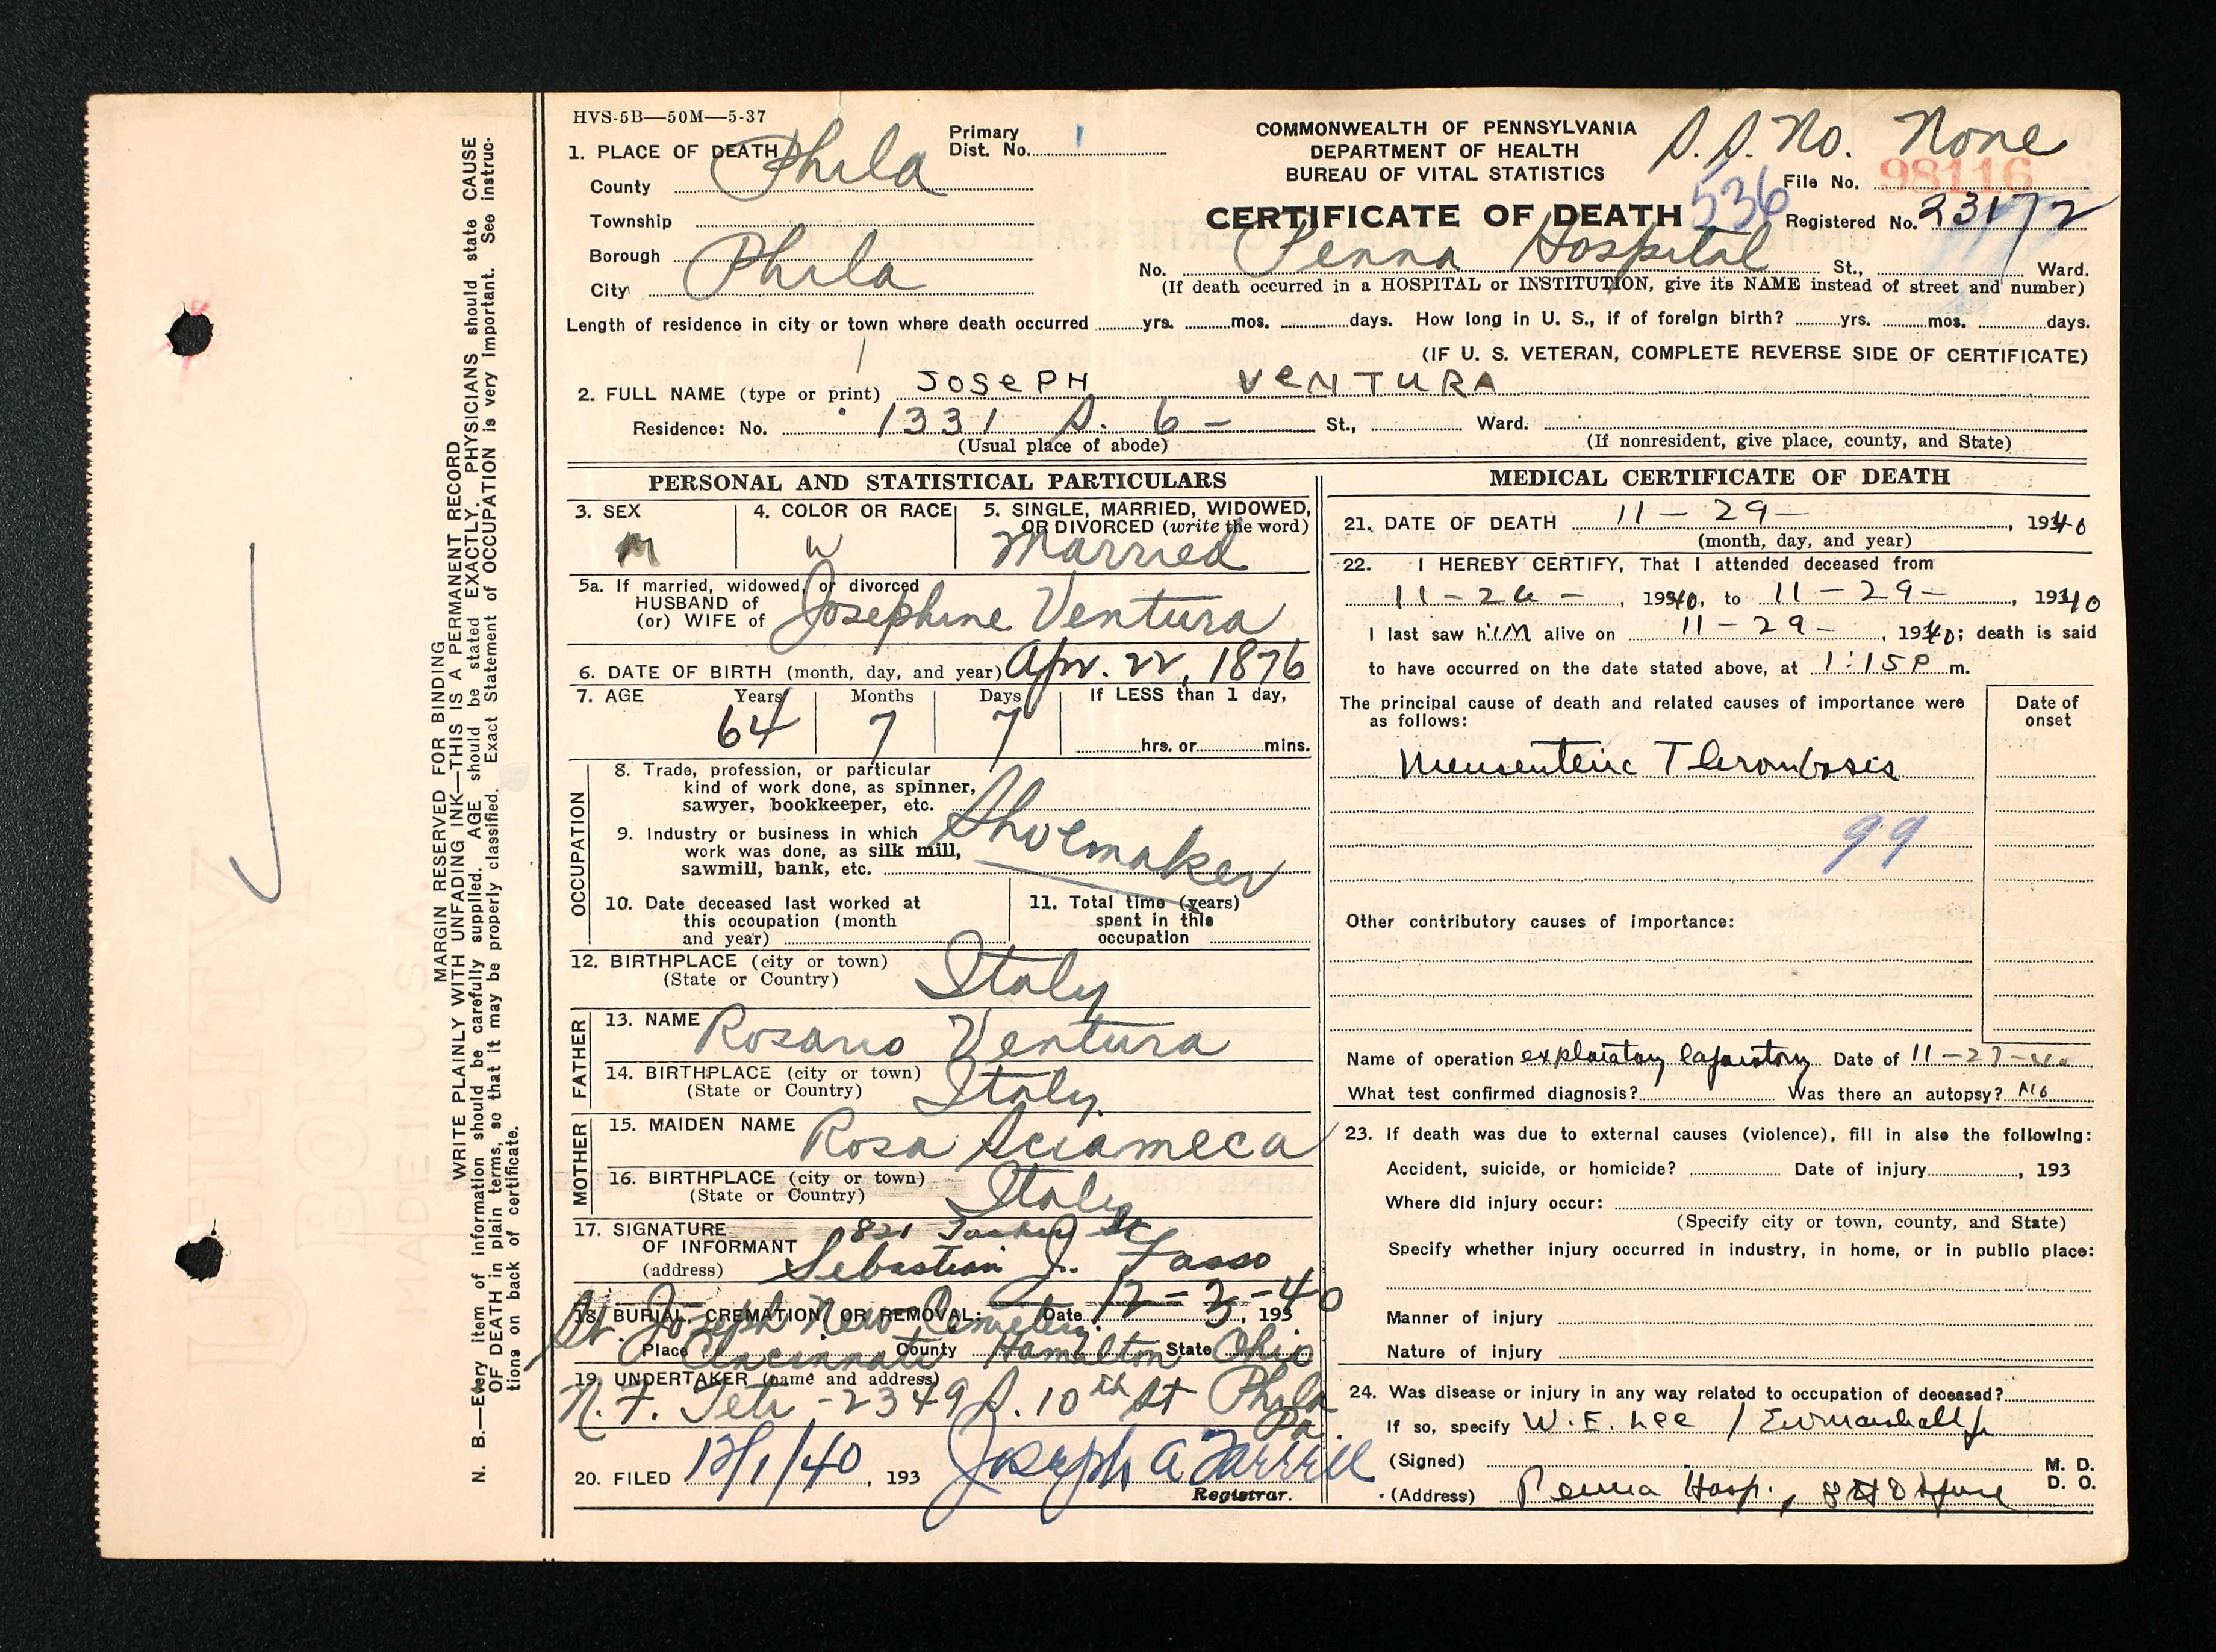 HVS-5B—50M—5-37
1. PLACE OF DEATH
County Phila
Township
Borough
City Phila
Primary
Dist. No. 1
COMMONWEALTH OF PENNSYLVANIA
DEPARTMENT OF HEALTH
BUREAU OF VITAL STATISTICS
CERTIFICATE OF DEATH
S.S. No. None
File No. 98116
536
Registered No. 23172
No. Penna Hospital St., Ward.
(If death occurred in a HOSPITAL or INSTITUTION, give its NAME instead of street and number)
Length of residence in city or town where death occurred yrs. mos. days. How long in U. S., if of foreign birth? yrs. mos. days.
(IF U. S. VETERAN, COMPLETE REVERSE SIDE OF CERTIFICATE)
2. FULL NAME (type or print) JOSEPH VENTURA
Residence: No. 1331 S. 6 — St., Ward.
(Usual place of abode) (If nonresident, give place, county, and State)
PERSONAL AND STATISTICAL PARTICULARS
3. SEX
M
4. COLOR OR RACE
W
5. SINGLE, MARRIED, WIDOWED,
OR DIVORCED (write the word)
Married
5a. If married, widowed, or divorced
HUSBAND of
(or) WIFE of Josephine Ventura
6. DATE OF BIRTH (month, day, and year) Apr. 22, 1876
7. AGE Years Months Days If LESS than 1 day,
64 7 7 hrs. or mins.
OCCUPATION
8. Trade, profession, or particular
kind of work done, as spinner,
sawyer, bookkeeper, etc.
Shoemaker
9. Industry or business in which
work was done, as silk mill,
sawmill, bank, etc.
10. Date deceased last worked at
this occupation (month
and year)
11. Total time (years)
spent in this
occupation
12. BIRTHPLACE (city or town)
(State or Country) Italy
FATHER
13. NAME Rosario Ventura
14. BIRTHPLACE (city or town)
(State or Country) Italy
MOTHER
15. MAIDEN NAME Rosa Sciameca
16. BIRTHPLACE (city or town)
(State or Country) Italy
17. SIGNATURE 821 Tasker St
OF INFORMANT
(address) Sebastian J. Fasso
18. BURIAL, CREMATION, OR REMOVAL: Date 12-3-40, 193
St. Joseph New Cemetery
Place Cincinnati County Hamilton State Ohio
19. UNDERTAKER (name and address)
N. F. Teti - 2349 S. 10th St Phila
Pa.
20. FILED 12/1/40, 193 Joseph A Farrell
Registrar.
MEDICAL CERTIFICATE OF DEATH
21. DATE OF DEATH 11 - 29 - , 1940
(month, day, and year)
22. I HEREBY CERTIFY, That I attended deceased from
11 - 26 - , 1940, to 11 - 29 - , 1940
I last saw him alive on 11 - 29 - , 1940; death is said
to have occurred on the date stated above, at 1:15 P m.
The principal cause of death and related causes of importance were
as follows:
Date of
onset
Mensenteric Thrombosis
99
Other contributory causes of importance:
Name of operation exploratory laparotomy Date of 11-27-40
What test confirmed diagnosis? Was there an autopsy? No
23. If death was due to external causes (violence), fill in also the following:
Accident, suicide, or homicide? Date of injury , 193
Where did injury occur:
(Specify city or town, county, and State)
Specify whether injury occurred in industry, in home, or in public place:
Manner of injury
Nature of injury
24. Was disease or injury in any way related to occupation of deceased?
If so, specify W. E. Lee / E W Marshall Jr
(Signed) M. D.
(Address) Penna Hosp., D. O.
MARGIN RESERVED FOR BINDING
WRITE PLAINLY WITH UNFADING INK—THIS IS A PERMANENT RECORD
N. B.—Every item of information should be carefully supplied. AGE should be stated EXACTLY. PHYSICIANS should state CAUSE
OF DEATH in plain terms, so that it may be properly classified. Exact Statement of OCCUPATION is very important. See instruc-
tions on back of certificate.